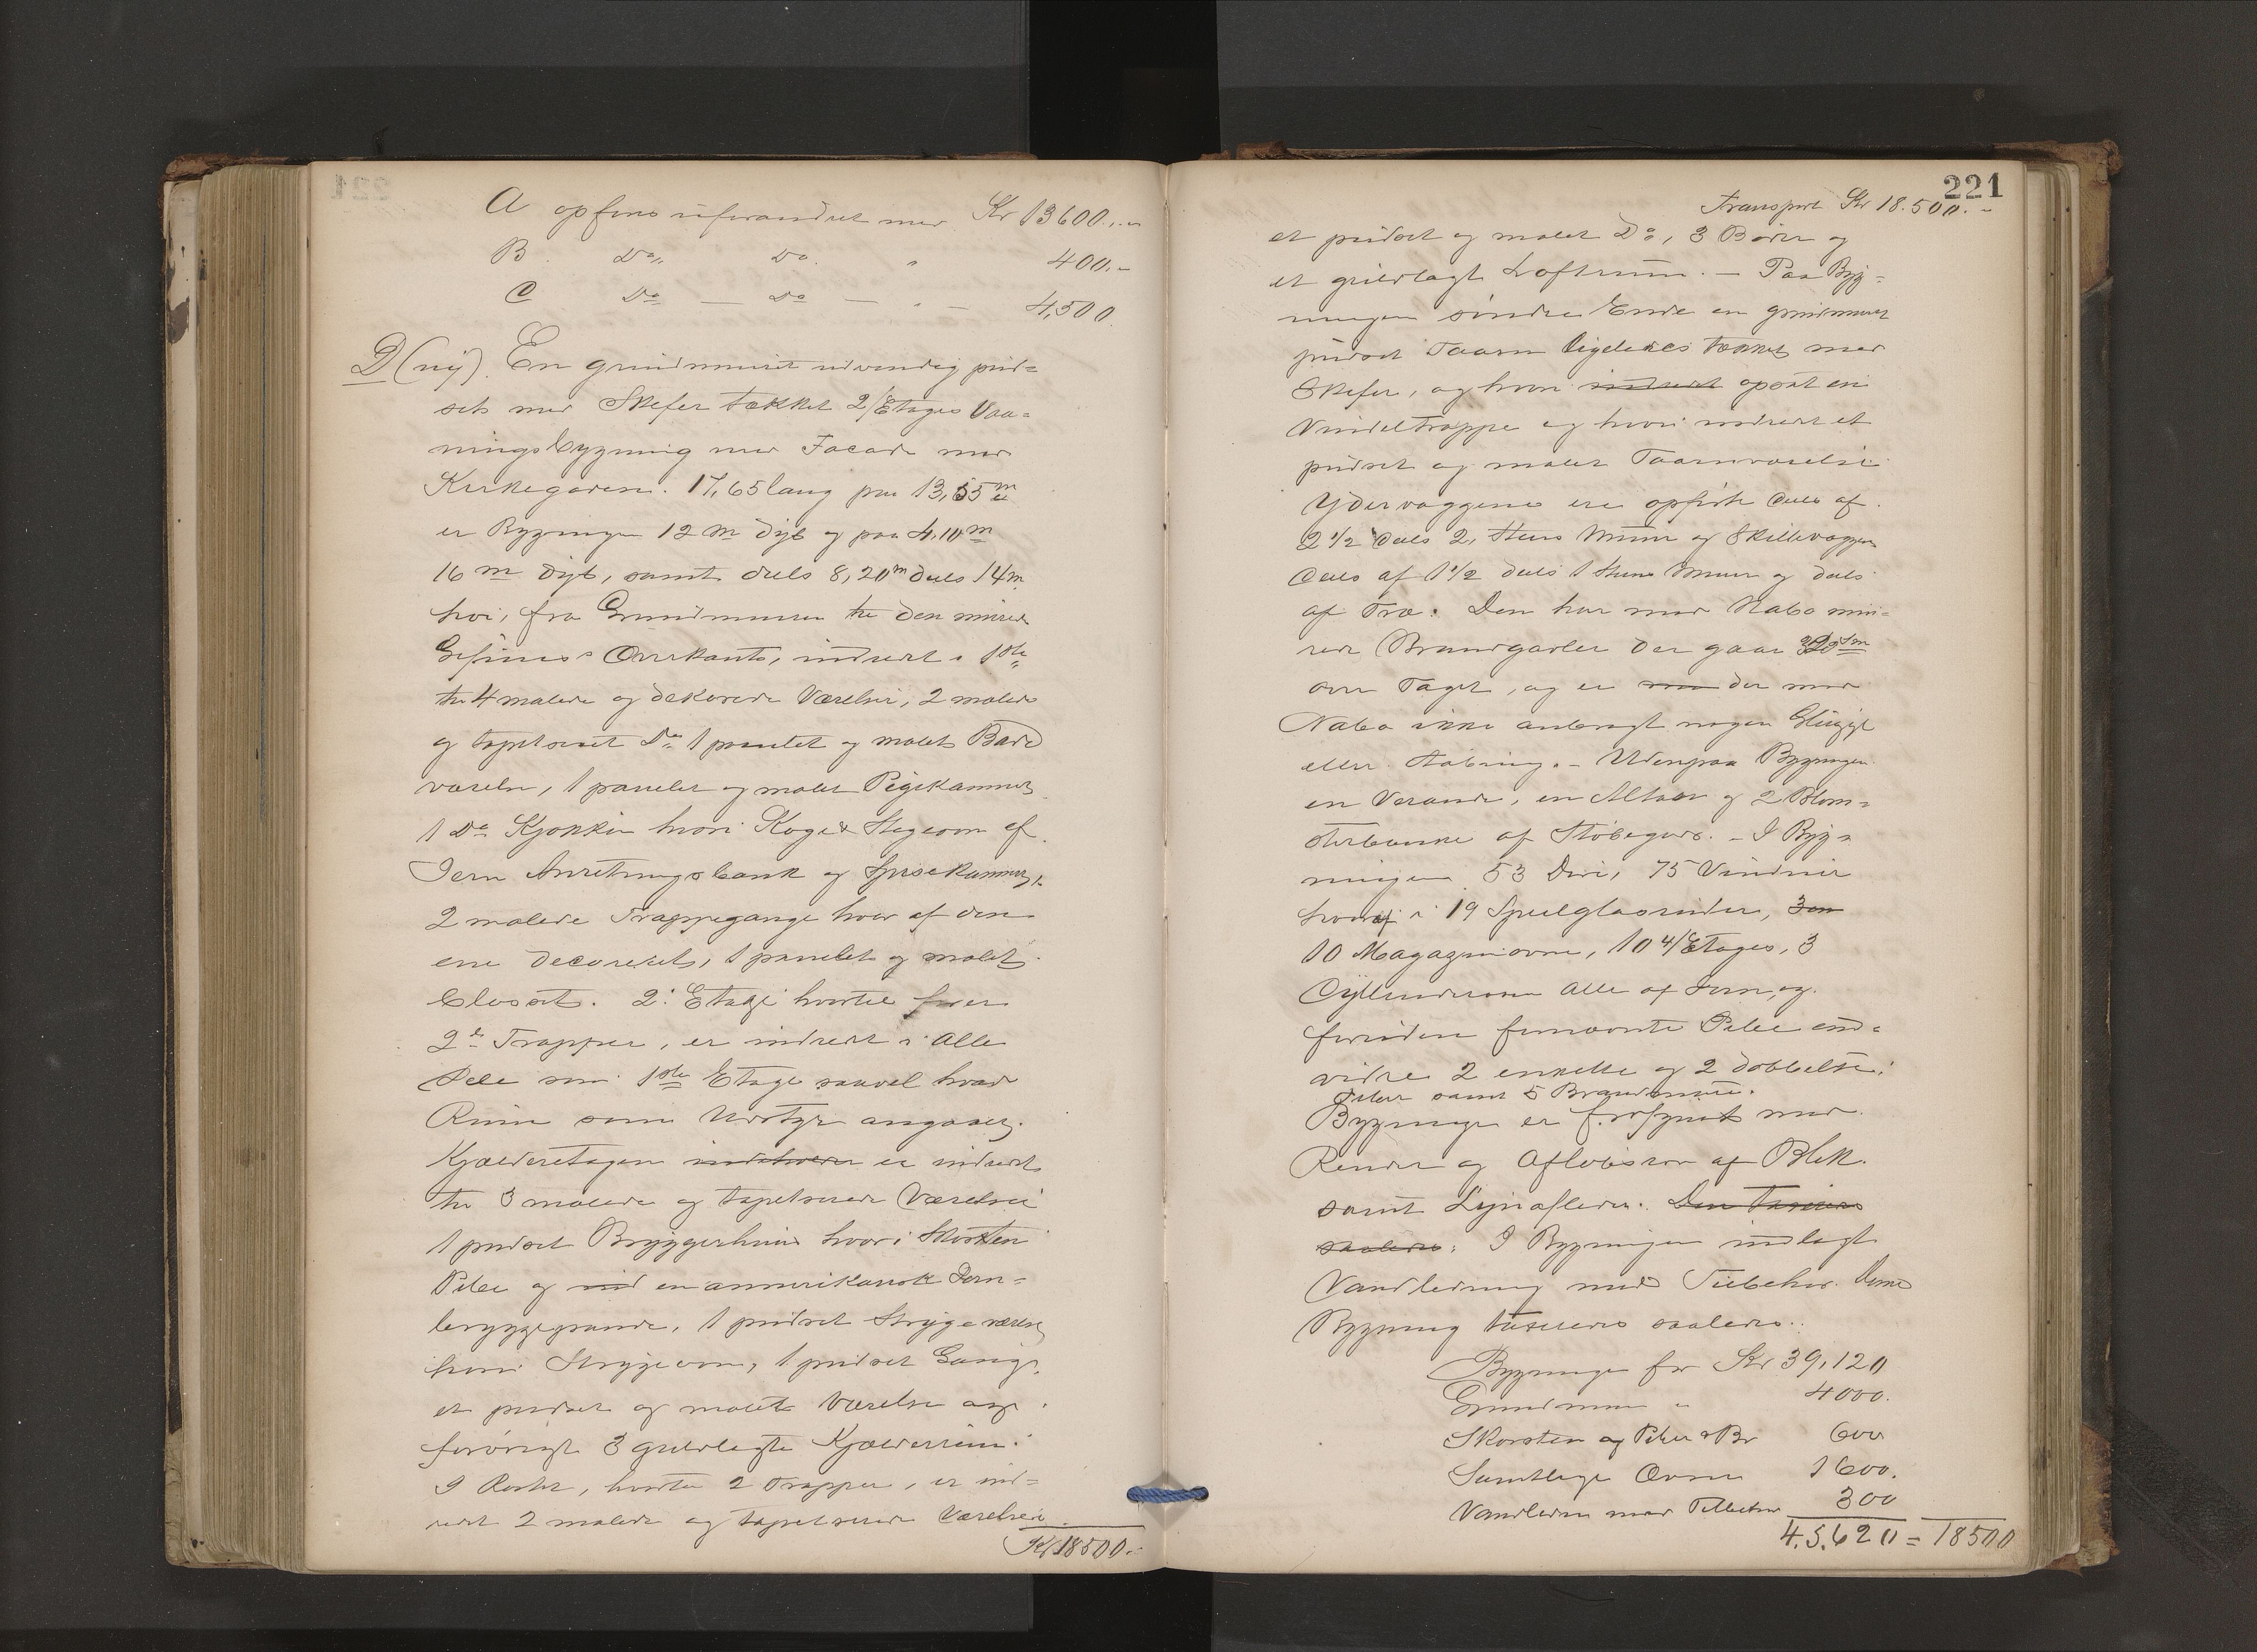 A opføres uforandret med Kr 13600.-
B Do Do " 400.-
C Do — Do — " — 4,500
D (ny). En grundmuret udvendig pud=
set med Skifer tækket 2/Etages Vaa=
ningsbygning med Facade mod
Kirkegaden. 17,65 lang paa 13,55 m
er Bygningen 12 m dyb og paa 4,10 m
16 m dyb, samt dels 8,20 m dels 14 m
høi, fra Grundmuren til den murede
Gesimses Overkant, indredet i 1ste
til 4 malede og dekorerede Værelser, 2 malede
og tapetseret Do 1 panelet og malet Bade
værelse, 1 panelet og malet Pigekammer
1 Do Kjøkken hvori Koge & Stegeovn af
Jern Anretningsbænk og Spisekammer,
2 malede Trappegange hvor af den
ene decoreret, 1 panelet og malet
Closet. 2. Etage hvortil fører
2de Trapper, er indredet i alle
Dele som 1ste Etage saavel hvad
Rum som Udstyr angaaer.
Kjælderetagen indeholder er indredet
til 3 malede og tapetserede Værelser
1 pudset Bryggerhuus hvori Skorsten
Pibe og ind en ammerikansk Jern=
bryggepande, 1 pudset Strygeværelse
hvori Strygeovn, 1 pudset Gang,
et pudset og malet Værelse og
forøvrigt 3 gulvlagte Kjælderrum.
I Røstet, hvortil 2 Trapper, er ind=
redet 2 malede og tapetserede Værelser
Kr 18500.-
221
Transport Kr 18.500.-
et pudset og malet Do, 3 Boder og
et gulvlagt Loftrum. — Paa Byg=
ningens søndre Ende en grundmuret
pudset Taarn ligeledes tækket med
Skifer, og hvori indredet opsat en
Vindeltrappe og hvori indredet et
pudset og malet Taarnværelse
Ydervæggene ere opførte deels af
2 1/2 deels 2, Steens Muur og Skillevæggene
deels af 1 1/2 deels 1 Steens Muur og dels
af Træ. Den har mod Nabo mu=
rede Brandgavler der gaar
over Taget, og er der mod
Nabo ikke anbragt nogen Glugge
eller Aabning. - Udenpaa Bygningen
en Veranda, en Altan og 2 Blom=
sterbænke af Støbegods. - I Byg=
ningen 53 Døre, 75 Vinduer
hvoraf i 19 Speilglasruder,
10 Magazinovne, 10 4/Etages, 3
Cyllinderovne alle af Jern, og
foruden fornævnte Pibe end=
videre 2 enkelte og 2 dobbelte
Piber samt 5 Brandmure.
Bygningen er forsynet med
Render og Afløbsrør af Blik
samt Lynafleder. Den taxeres
saaledes: I Bygningen indlagt
Vandledning med Tilbehør. Denne
Bygning taxeres saaledes:
Bygningen for Kr 39,120
Grundmur " 4000.
Skorsten og Piber & Br 600
Samtlige Ovne 1600.
Vandledn med Tilbehør 300
45.620 = 18500